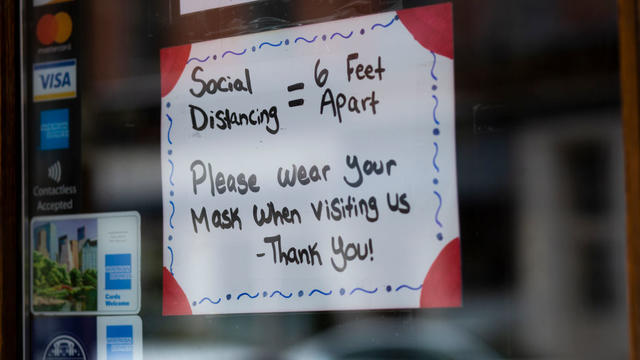 mastercard
VISA
AMERICAN EXPRESS
Contactless
Accepted
AMERICAN EXPRESS
Cards
Welcome
Social
Distancing = 6 Feet
Apart
Please wear your
Mask when visiting us
-Thank You!